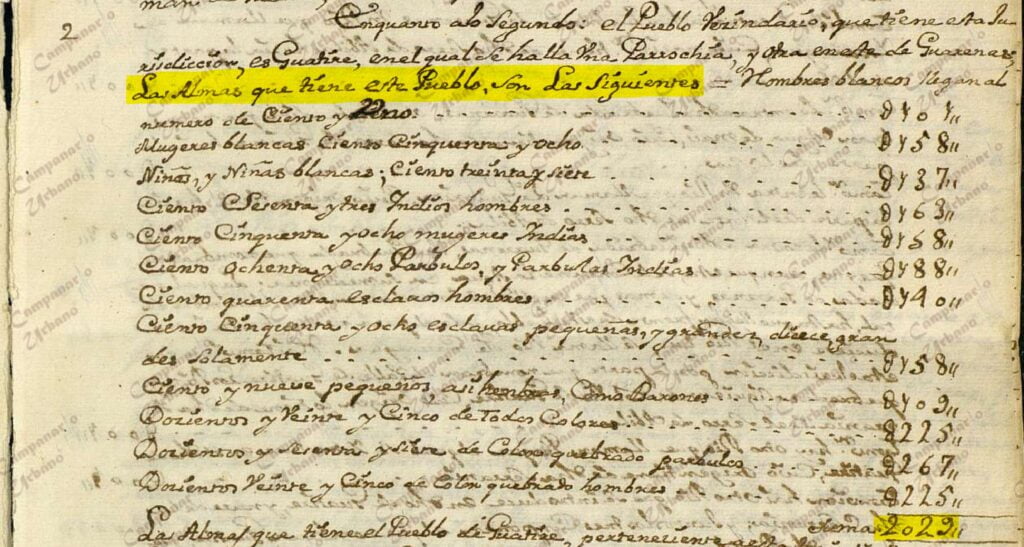 2 Enquanto alo Segundo: el Pueblo Vecindario, que tiene esta Ju
risdiccion, es Guatire, en el qual se halla Una Parrochia, y otra en este de Guarenas
Las Almas que tiene este Pueblo, son Las Siguientes = Hombres blancos llegan al
numero de Ciento y
Mugeres blancas Ciento Cinquenta y ocho 8158,,
Niños, y Niñas blancas; Ciento treinta y siete 8137,,
Ciento Sesenta y tres Indios hombres 8163,,
Ciento Cinquenta y Ocho mugeres Indias 8158,,
Ciento Ochenta, y Ocho Parbulos, y Parbulas Indias 8188,,
Ciento quarenta esclavos hombres 8140,,
Ciento Cinquenta y ocho esclavas pequeñas, y grandes, gran
des solamente 8158,,
Ciento y nueve pequeños asi hembras, Como Barones 8109,,
Docientos y Veinte y Cinco de Todos Colores 8225,,
Docientos, y Sesenta y Siete de Color quebrado parbulos 8267,,
Docientos Veinte y Cinco de Color quebrado hombres 8225,,
Las Almas que tiene el Pueblo de Guatire, perteneciente 2029,,
Campanario
Urbano